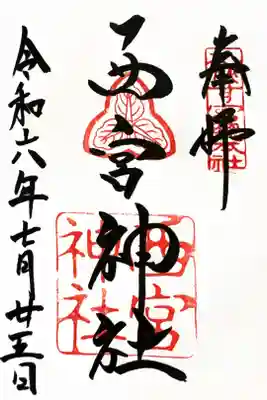 奉拝
西宮神社
西宮
神社
令和六年七月廿五日